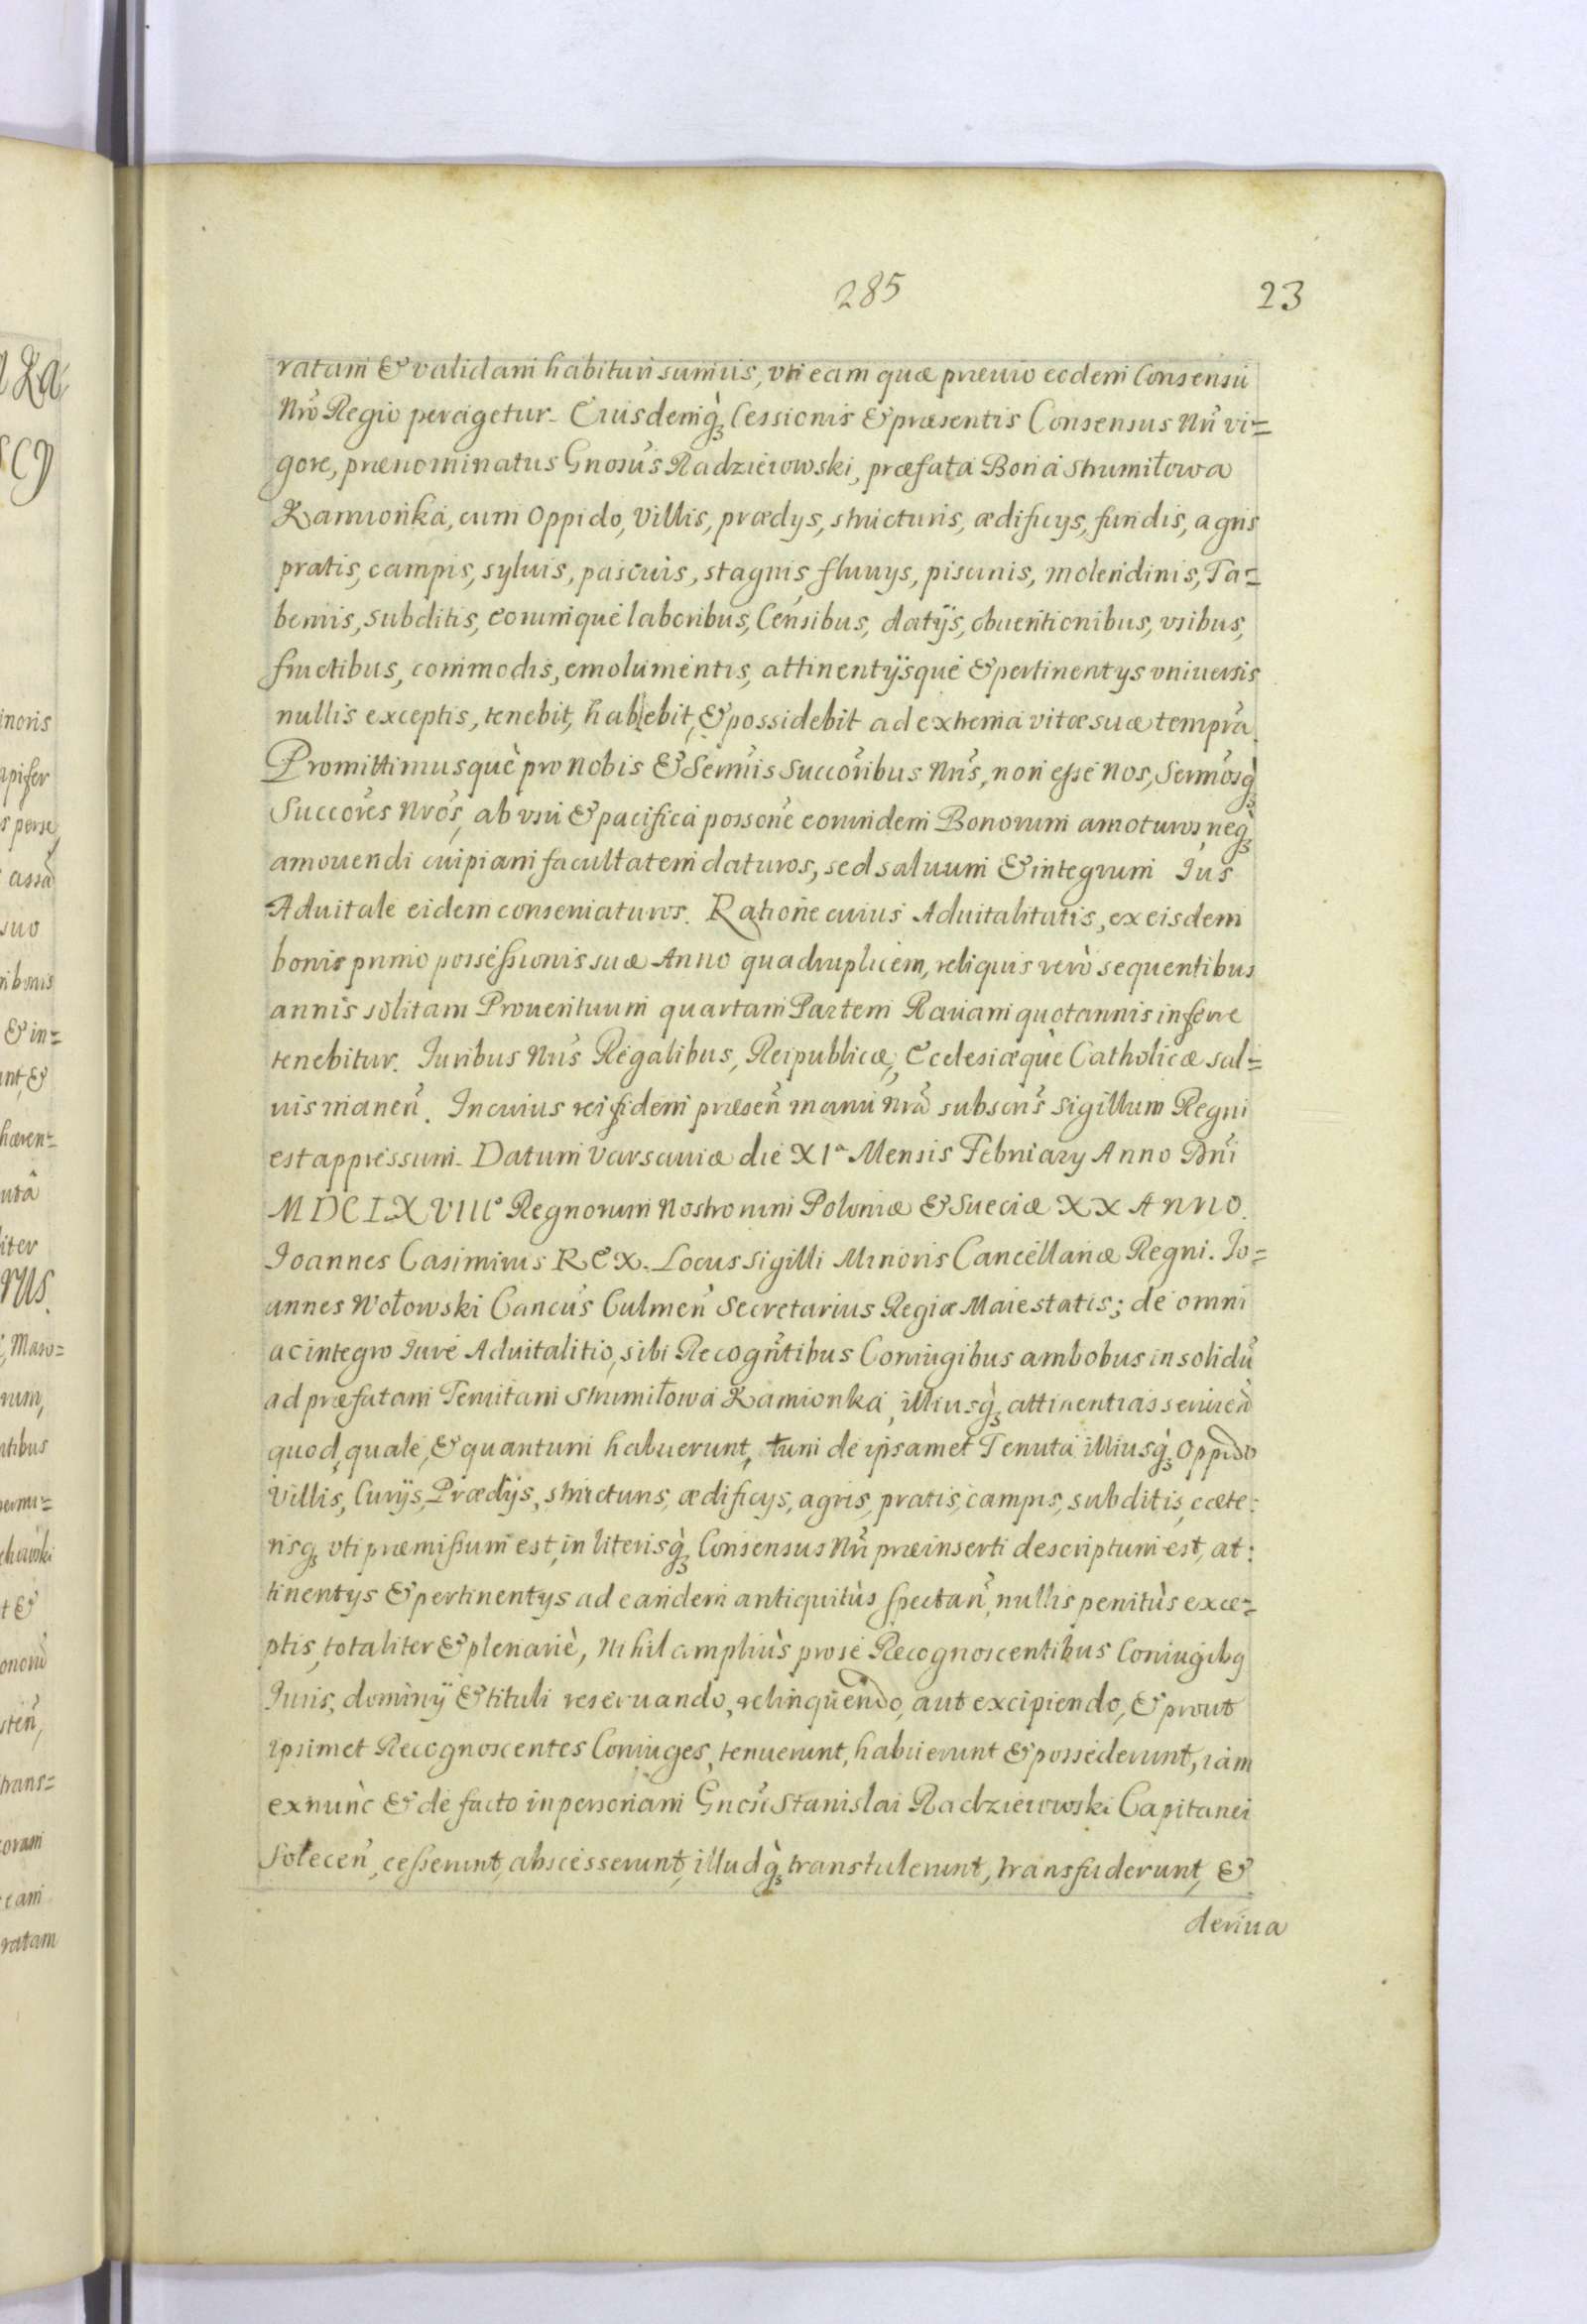 285
23
ratam & validam habituri sumus, vti eam quæ præuio eodem Consensu
Nrõ Regio peragetur. Eiusdemq̀ Cessionis & præsentis Consensus Nrĩ vi=
gore, prænominatus Gnosũs Radzieiowski, præfata Bona Strumiłowa
Kamionka, cum Oppido, Villis, prædys, structuris, ædificys, fundis, agris
pratis, campis, syluis, pascuis, stagnis, fluuys, piscinis, molendinis, Ta=
bernis, subditis, eorumque laboribus, Censibus, datÿs, obuentionibus, vsibus,
fructibus, commodis, emolumentis, attinentÿsque & pertinentys vniuersis
nullis exceptis, tenebit, habebit, & possidebit ad extrema vitæ suæ temprã.
Promittimusquè pro nobis & Sermĩs Succorĩbus Nrĩs, non esse nos, Sermosq̀
Succorẽs Nros̃, ab vsu & pacifica possonẽ eorundem Bonorum amoturos, neq̀
amouendi cuipiam facultatem daturos, sed saluum & integrum Ius
Aduitale eidem conseruaturos. Ratione cuius Aduitalitatis, ex eisdem
bonis primo possessionis suæ Anno quadruplicem, reliquis verò sequentibus
annis solitam Prouentuum quartam Partem Rauam quotannis inferre
tenebitur. Iuribus Nrĩs Regalibus, Reipublicæ, Ecclesiæquè Catholicæ sal=
uis maneñ. In cuius rei fidem præseñ manu Nrã subscrĩs Sigillum Regni
est appressum. Datum Varsauiæ die XIª Mensis Februarÿ Anno Dnĩ
MDCLXVIIIº Regnorum Nostrorum Poloniæ & Sueciæ XX Anno.
Ioannes Casimirus REX. Locus Sigilli Minoris Cancellariæ Regni. Io=
annes Wołowski Cancũs Culmeñ Secretarius Regiæ Maiestatis; de omni
ac integro Iure Aduitalitio, sibi Recogñtibus Coniugibus ambobus in solidũ
ad præfatam Tenutam Strumiłowa Kamionka, illiusq̀ attinentias seruieñ
quod, quale, & quantum habuerunt, tum de ipsamet Tenuta illiusq̀ Oppido
Villis, Curÿs, Prædÿs, structuris, ædificys, agris, pratis, campis, subditis, cæte:
risq̀ vti præmissum est, in literisq̀ Consensus Nrĩ præinserti descriptum est, at:
tinentys & pertinentys ad eandem antiquitùs spectañ, nullis penitùs exce=
ptis, totaliter & plenariè, Nihil ampliùs pro se Recognoscentibus Coniugibq
Iuris, dominÿ & tituli reseruando, relinquendo, aut excipiendo, & prout
ipsimet Recognoscentes Coniuges, tenuerunt, habuerunt & possederunt, iam
exnunc & de facto in personam Gnosĩ Stanislai Radzieiowski Capitanei
Soleceñ, cesserunt, abscesserunt, illudq̀ transtulerunt, transfuderunt, &
deriua